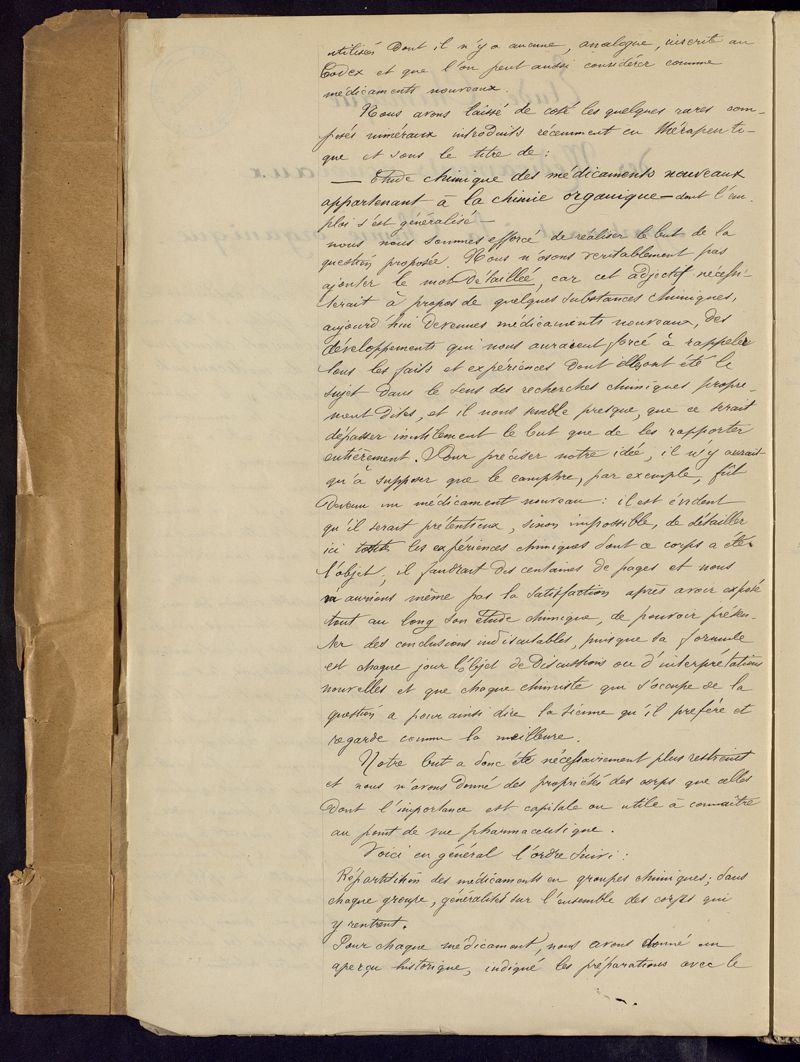 utilisés dont il n'y a aucune, analogue, inscrite au
Codex et que l'on peut aussi considérer comme
médicaments nouveaux.
Nous avons laissé de coté les quelques rares com-
posés minéraux introduits récemment en thérapeuti-
que et sous le titre de :
— Etude chimique des médicaments nouveaux
appartenant à la chimie organique — dont l'em-
ploi s'est généralisé —
nous nous sommes efforcé de réaliser le but de la
question proposée. Nous n'osons veritablement pas
ajouter le mot détaillée, car cet adjectif nécessi-
terait à propos de quelques substances chimiques,
aujourd'hui devenues médicaments nouveaux, des
développements qui nous auraient forcé à rappeler
tous les faits et expériences dont elles ont été le
sujet dans le sens des recherches chimiques propre-
ment dites, et il nous semble presque, que ce serait
dépasser inutilement le but que de les rapporter
entièrement. Pour préciser notre idée, il n'y aurait
qu'à supposer que le camphre, par exemple, fût
devenu un médicament nouveau : il est évident
qu'il serait prétentieux, sinon impossible, de détailler
ici les expériences chimiques dont ce corps a été
l'objet ; il faudrait des centaines de pages et nous
n'aurions même pas la satisfaction après avoir exposé
tout au long son étude chimique, de pouvoir présen-
ter des conclusions indiscutables, puisque sa formule
est chaque jour l'objet de discussions ou d'interprétations
nouvelles et que chaque chimiste qui s'occupe de la
question a pour ainsi dire la sienne qu'il preferé et
regarde comme la meilleure.
Notre but a donc été nécessairement plus restreint
et nous n'avons donné des propriétés des corps que celles
dont l'importance est capitale ou utile à connaître
au point de vue pharmaceutique.
Voici en général l'ordre suivi :
Répartition des médicaments en groupes chimiques ; dans
chaque groupe, généralités sur l'ensemble des corps qui
y rentrent.
Pour chaque médicament, nous avons donné un
aperçu historique, indiqué les préparations avec le